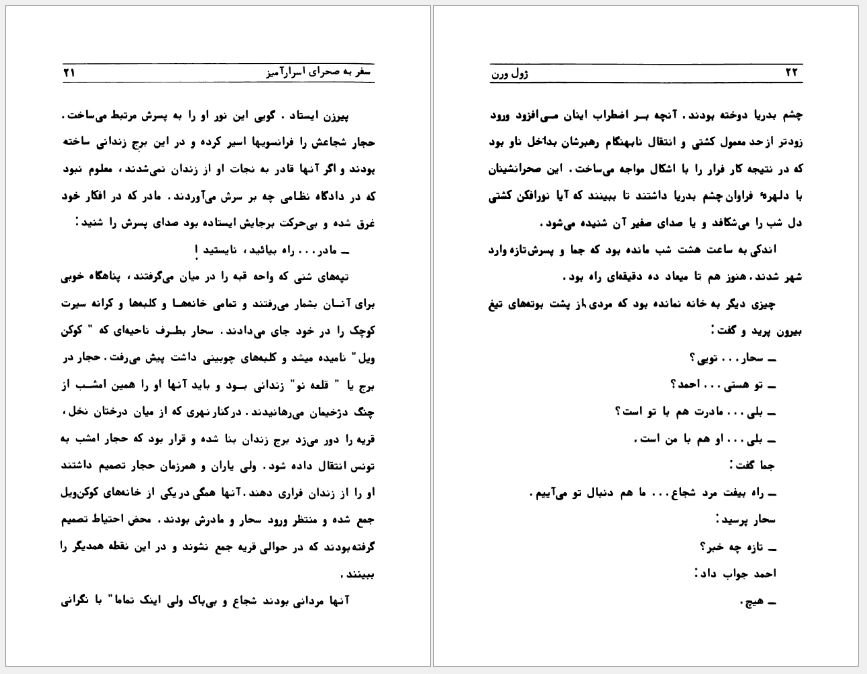 سفر به صحرای اسرارآمیز ۲۱
پیرزن ایستاد . گویی این نور او را به پسرش مرتبط می‌ساخت .
حجار شجاعش را فرانسویها اسیر کرده و در این برج زندانی ساخته
بودند و اگر آنها قادر به نجات او از زندان نمی‌شدند ، معلوم نبود
که در دادگاه نظامی چه بر سرش می‌آوردند . مادر که در افکار خود
غرق شده و بی‌حرکت برجایش ایستاده بود صدای پسرش را شنید :
ــ مادر ... راه بیائید ، نایستید !
تپه‌های شنی که واحه قبه را در میان می‌گرفتند ، پناهگاه خوبی
برای آنـان بشمار می‌رفتند و تمامی خانه‌هـا و کلبه‌ها و کرانه سیرت
کوچک را در خود جای می‌دادند . سحار بطـرف ناحیه‌ای که " کوکن
ویل " نامیده میشد و کلبه‌های چوبینی داشت پیش می‌رفت . حجار در
برج یا " قلعه نو" زندانی بـود و باید آنها او را همین امشـب از
چنگ دژخیمان می‌رهانیدند . درکنار نهری که از میان درختان نخل ،
قریه را دور می‌زد برج زندان بنا شده و قرار بود که حجار امشب به
تونس انتقال داده شود . ولی یاران و همرزمان حجار تصمیم داشتند
او را از زندان فراری دهند . آنها همگی دریکی از خانه‌های کوکن‌ویل
جمع شده و منتظر ورود سحار و مادرش بودند . محض احتیاط تصمیم
گرفته‌بودند که در حوالی قریه جمع نشوند و در این نقطه همدیگر را
ببینند .
آنها مردانی بودند شجاع و بی‌باک ولی اینک تماما" با نگرانی
۲۲ ژول ورن
چشم بدریا دوخته بودند . آنچه بـر اضطراب اینان مـی‌افزود ورود
زودتر از حد معمول کشتی و انتقال نابهنگام رهبرشان بداخل ناو بود
که در نتیجه کار فرار را با اشکال مواجه می‌ساخت . این صحرانشینان
با دلهرهٔ فراوان چشم بدریا داشتند تا ببینند که آیا نورافکن کشتی
دل شب را می‌شکافد و یا صدای صفیر آن شنیده می‌شود .
اندکی به ساعت هشت شب مانده بود که جما و پسرش تازه وارد
شهر شدند . هنوز هم تا میعاد ده دقیقه‌ای راه بود .
چیزی دیگر به خانه نمانده بود که مردی از پشت بوته‌های تیغ
بیرون پرید و گفت :
ــ سحار ... تویی ؟
ــ تو هستی ... احمد ؟
ــ بلی ... مادرت هم با تو است ؟
ــ بلی ... او هم با من است .
جما گفت :
ــ راه بیفت مرد شجاع ... ما هم دنبال تو می‌آییم .
سحار پرسید :
ــ تازه چه خبر ؟
احمد جواب داد :
ــ هیچ .